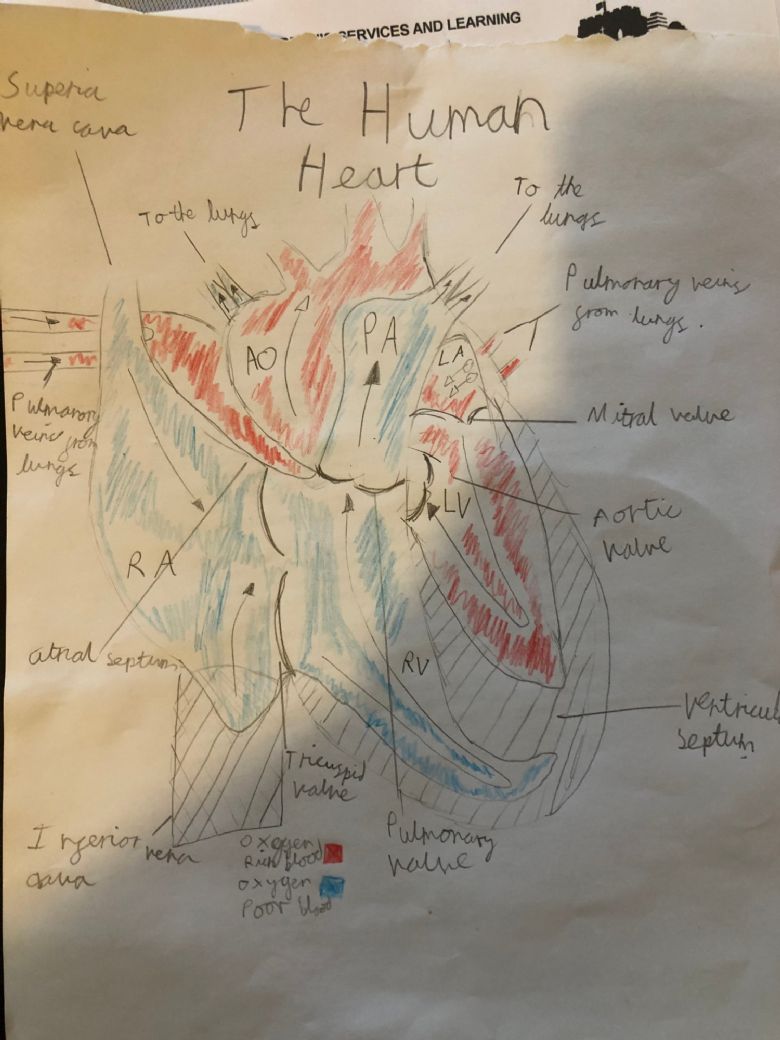 SERVICES AND LEARNING
The Human
Heart
Superia
vena cava
To the lungs
To the
lungs
Pulmonary veins
from lungs.
AO
PA
LA
Pulmonary
veins from
lungs
Mitral valve
LV
Aortic
valve
RA
atrial septum
RV
ventricul
septum
Tricuspid
valve
Pulmonary
valve
Ingerior vena
cava
Oxygen
Rich blood
oxygen
Poor blood